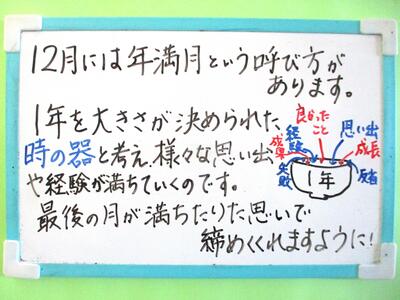 12月には年満月という呼び方が
あります。
1年を大きさが決められた、
時の器と考え、様々な思い出
や経験が満ちていくのです。
最後の月が満ちたりた思いで
締めくくれますように！
良かったこと
思い出
経験
成果
成長
失敗
反省
1年